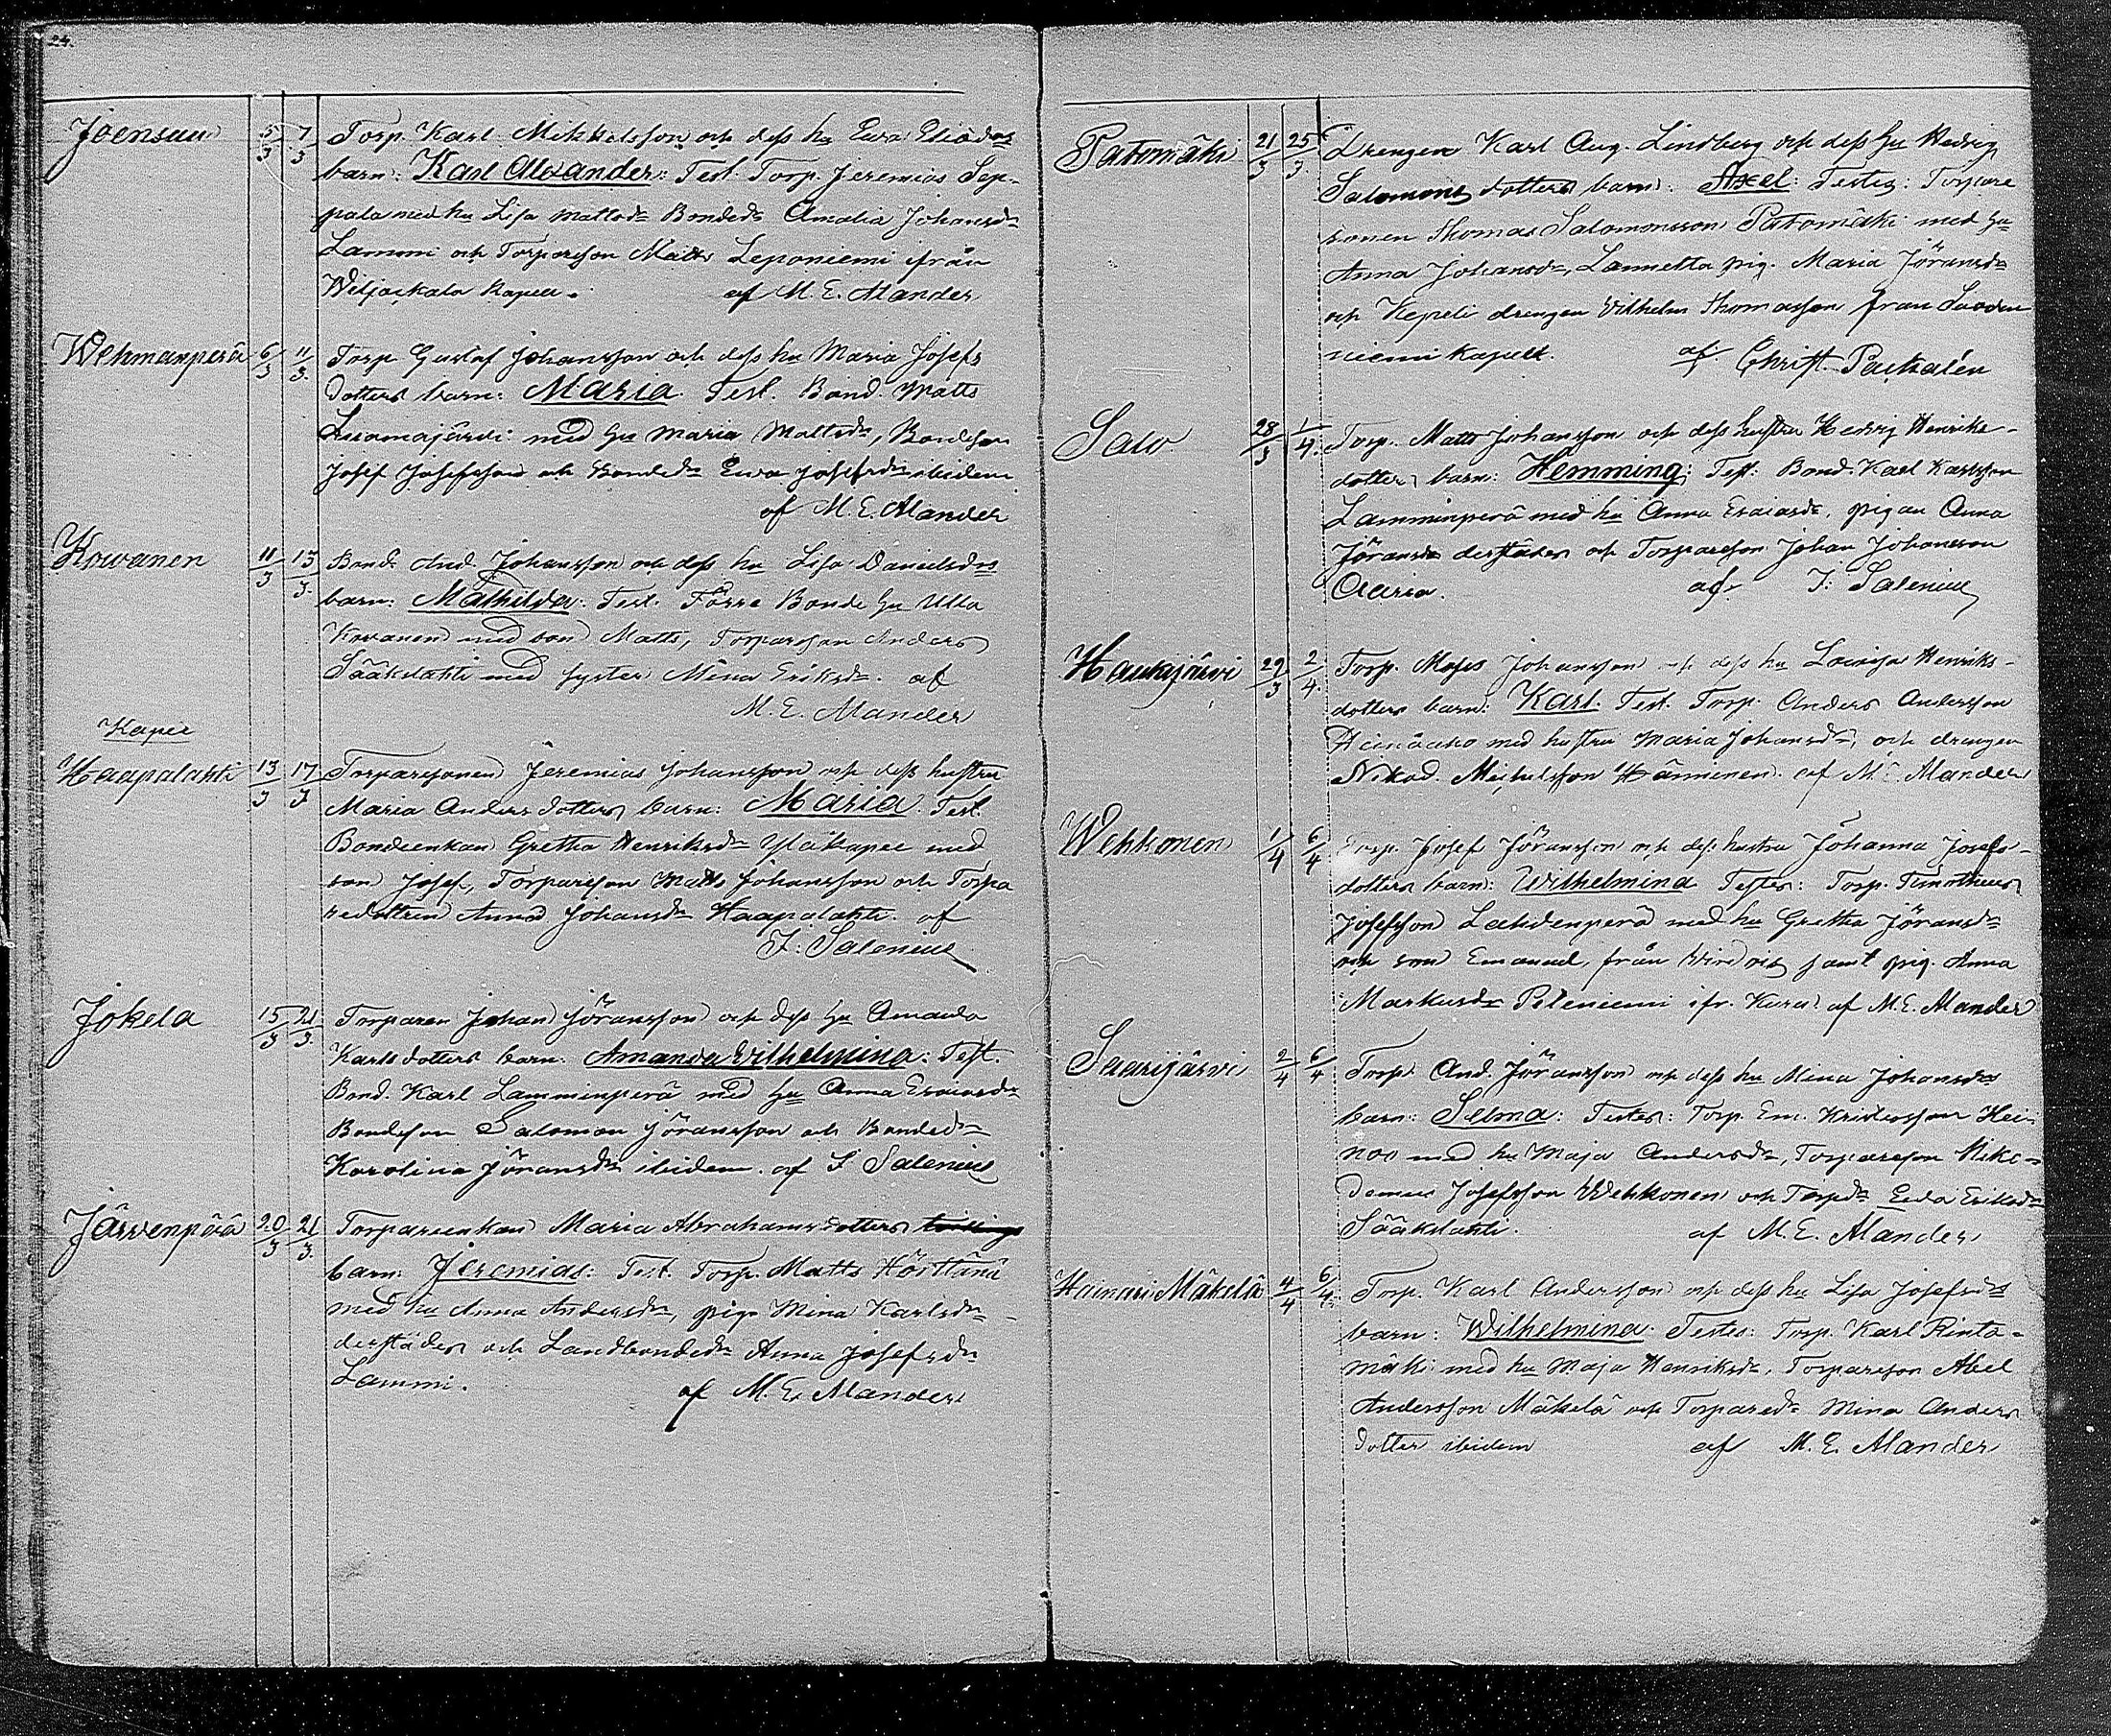 24.
Joensuu 5/3 7/3 Torp. Karl Mikkelsson och dess hu Ewa Eliæds
barn: Karl Alexander: Test. Torp. Jeremias Sep-
pala med hu Lisa Mattsdr Bondedr Amalia Johansdr
Lammi och Torparson Matts Leponiemi ifrån
Wiljakkala Kapell. af M. E. Alander
Wehmanperä 6/3 11/3 Torp Gustaf Johansson och dess hu Maria Josefs
dotters barn: Maria. Test. Bond. Matts
Luomajärvi med hu Maria Mattsdr, Bondeson
Josef Josefsson och Bondedr Ewa Josefsdr ibidem
af M. E. Alander
Kowanen 11/3 13/3 Bond. And. Johansson och dess hu Lisa Danielsdrs
barn: Mathilda. Test. Förre Bonde hu Ulla
Kowanen med son Matts, Torparson Anders
Sääkslahti med syster Mina Eriksdr. af
M. E. Alander
Kapee
Haapalahti 13/3 17/3 Torparsonen Jeremias Johansson och dess hustru
Maria Anders dotters barn: Maria. Test.
Bondeenkan Gretha Henriksdr Yläkapee med
son Josef, Torparson Matts Johansson och Torpa
redottren Anna Johansdr Haapalahti. af
F. Salenius
Jokela 15/3 21/3 Torparen Johan Jöransson och dess hu Amanda
Karlsdotters barn: Amanda Wilhelmina: Test.
Bond. Karl Lamminperä med hu Anna Esaiasdr
Bondeson Salomon Jöransson och Bondedr
Karolina Jöransdr ibidem. af F Salenius
Järvenpää 20/3 21/3 Torpareenkan Maria Abrahamsdotters
barn: Jeremias: Test. Torp. Matts Hörttänä
med hu Anna Andersdr, pigo Mina Karlsdr
derstädes och Landbondedr Anna Josefsdr
Lammi. af M. E. Alander
Patomäki 21/3 25/3 Drengen Karl Aug. Lindberg och dess hu Hedvig
Salomons dotters barn: Axel: Testes: Torpare
sonen Thomas Salomonsson Patomäki med hu
Anna Johansdr, Lannetta pig. Maria Jöransdr
och Kepeli drengen Vilhelm Thomasson från Suoden
niemi Kapell. af Christ. Paskalén
Salo 28/3 1/4 Torp. Matts Johansson och dess hustru Hedvig Henriks-
dotters barn: Hemming: Test: Bond. Karl Karlsson
Lamminperä med hu Anna Esaiasdr, pigan Anna
Jöransdr derstädes och Torparson Johan Johansson
af F. Salenius
Haukijärvi 29/3 2/4 Torp. Moses Johansson och dess hu Lovisa Henriks-
dotters barn: Karl. Test. Torp. Anders Andersson
Heinäaho med hustru Maria Johansdr, och drengen
Nikod. Michelsson Hänninen. af M. Alander
Wehkonen 1/4 6/4 Torp. Josef Jöransson och dess hustru Johanna Josefs-
dotters barn: Wilhelmina Testes: Torp. Timotheus
Josefsson Lahdenperä med hu Gretha Jöransdr
och son Emanuel, från Wirdois samt pig. Anna
Markusdr Pileniemi ifr. Kuru af M. E. Alander
Saarijärvi 2/4 6/4 Torp. And. Jöransson och dess hu Mina Johansdrs
barn: Selma: Testes: Torp. Em. Kristersson Hei-
noo med hu Maja Andersdr, Torparson Niko-
demus Josefsson Wehkonen och Torpdr Eva Eriksdr
Sääkslahti. af M. E. Alander
Heinari Mäkelä 4/4 6/4 Torp. Karl Andersson och dess hu Lisa Josefsdrs
barn: Wilhelmina. Testes: Torp. Karl Rinta-
mäki med hu Maja Henriksdr, Torparson Abel
Andersson Mäkelä och Torparedr Mina Anders
dotter ibidem af M. E. Alander